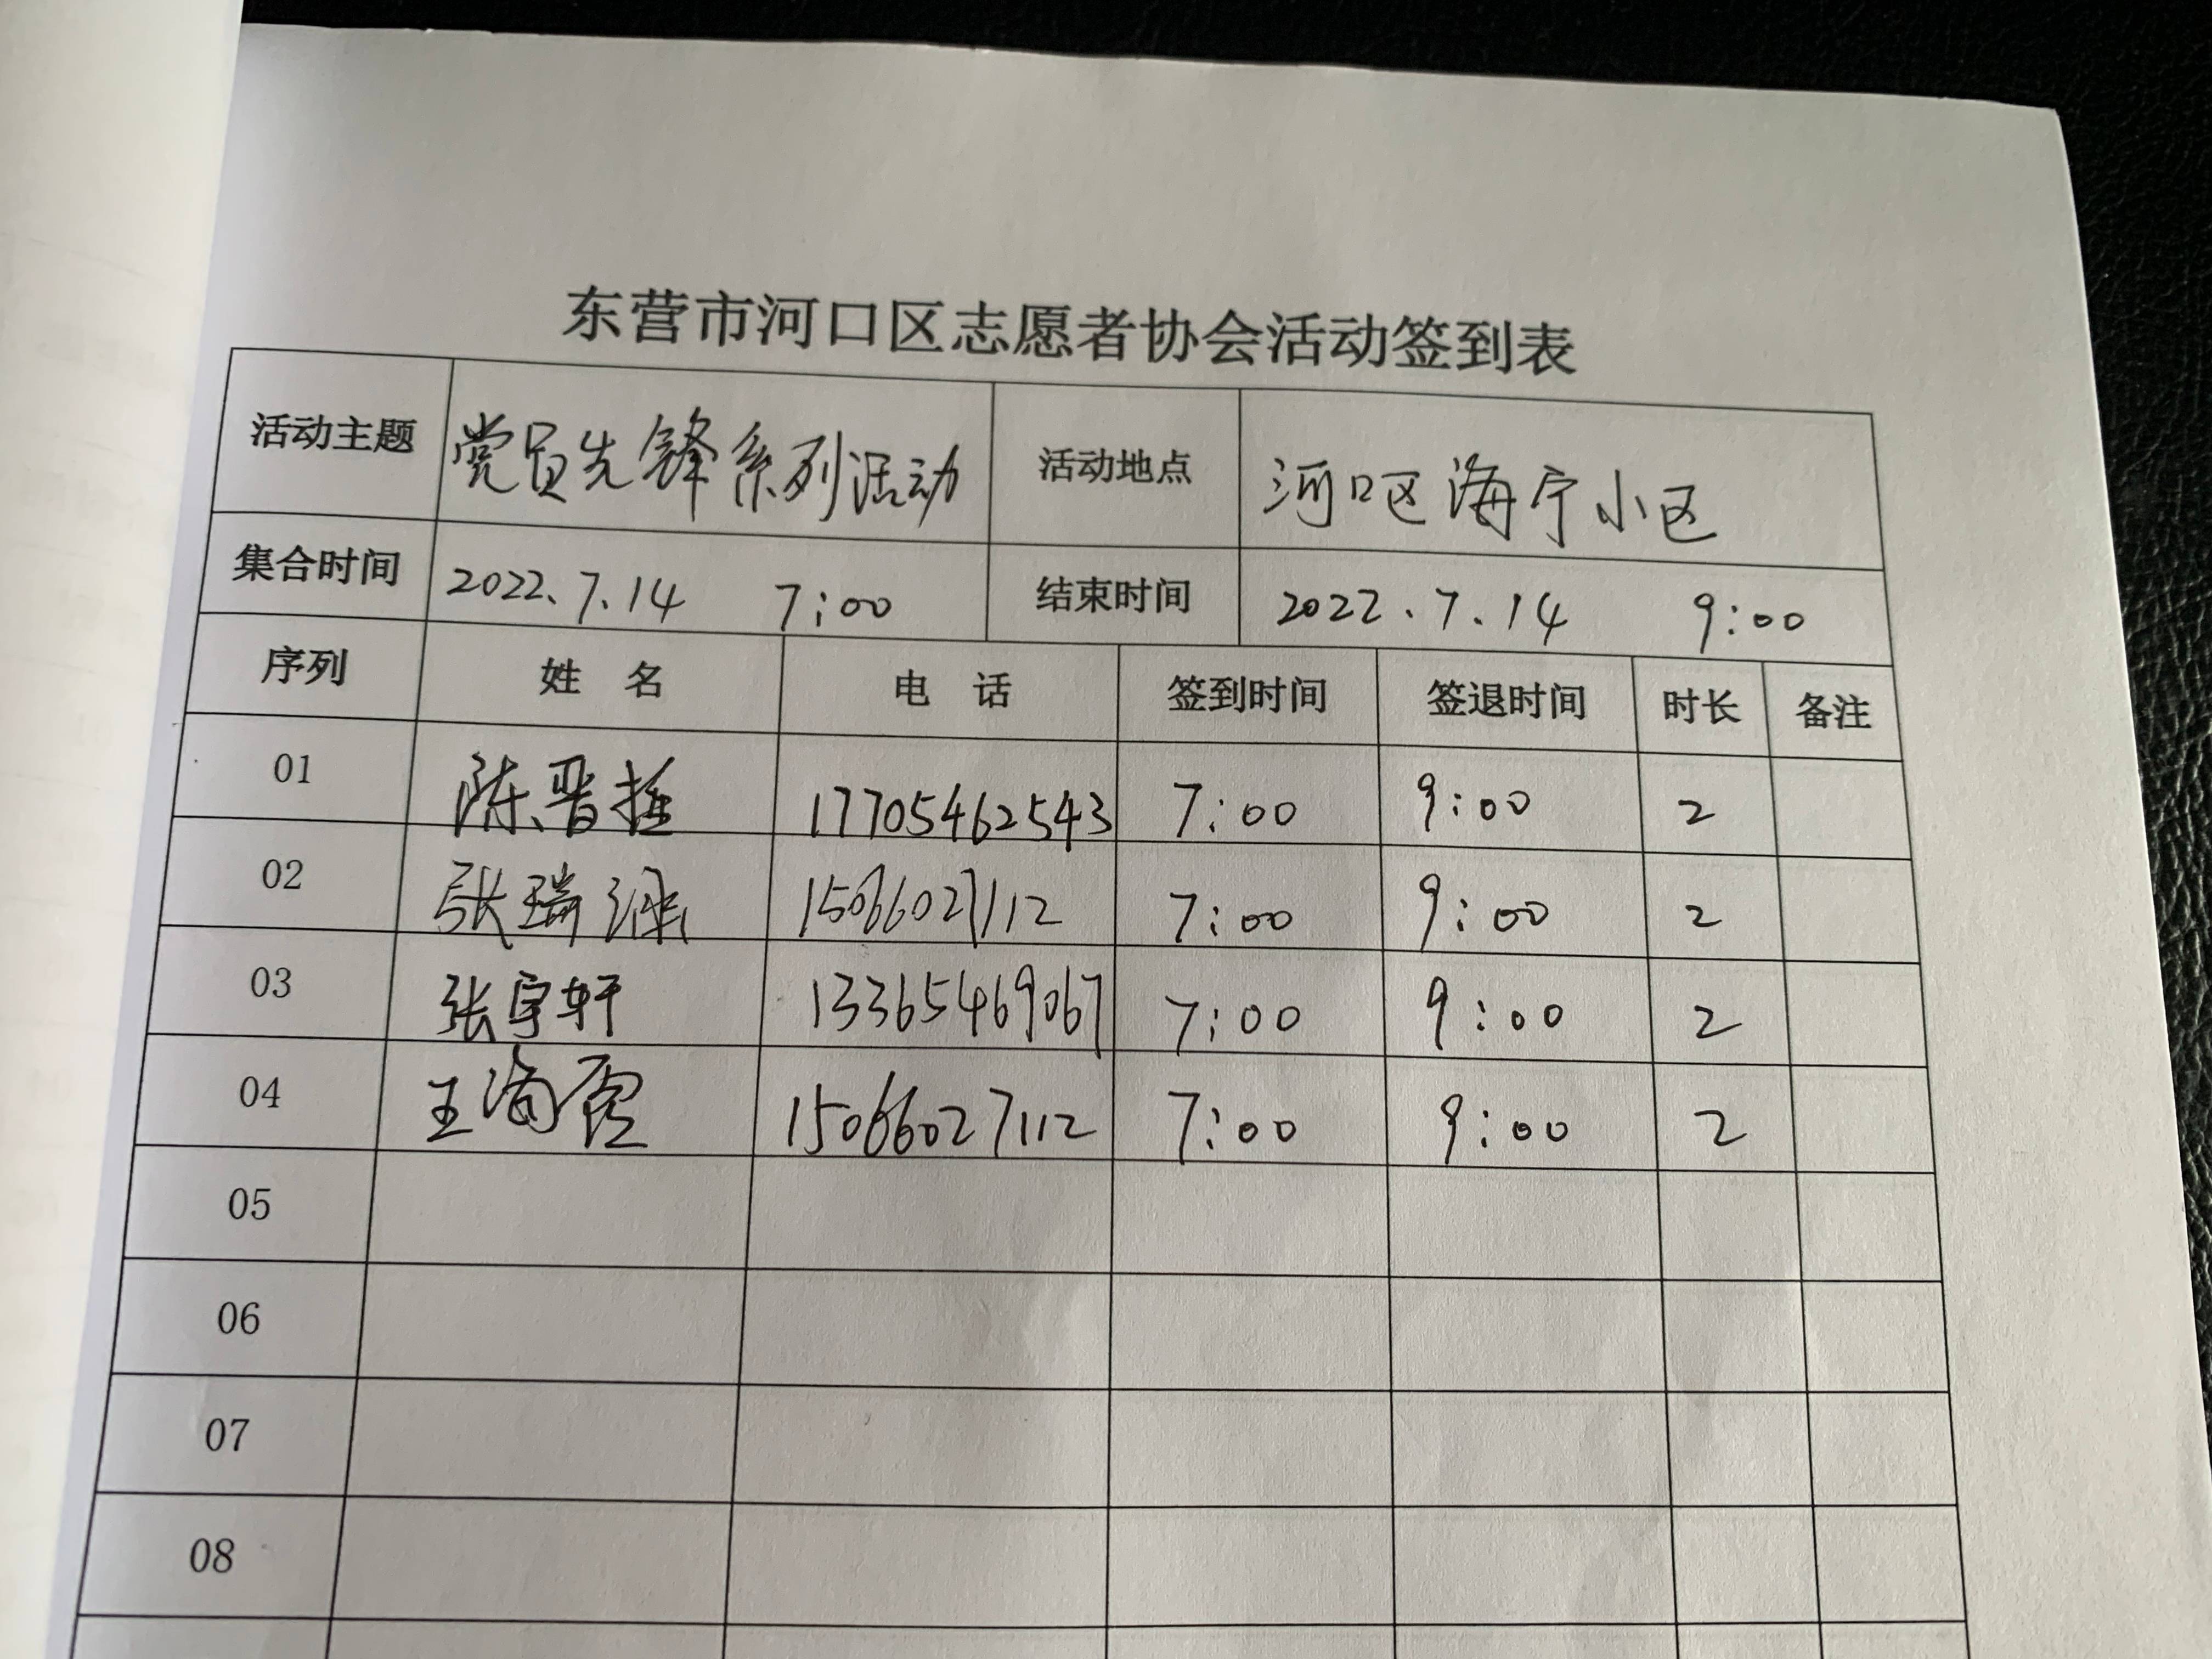 东营市河口区志愿者协会活动签到表
活动主题 党员先锋系列活动 活动地点 河口区海宁小区
集合时间 2022.7.14 7:00 结束时间 2022.7.14 9:00
序列 姓 名 电 话 签到时间 签退时间 时长 备注
01 陈晋拴 17705462543 7:00 9:00 2
02 张瑞 15066027112 7:00 9:00 2
03 张宇轩 13365469067 7:00 9:00 2
04 王 15066027112 7:00 9:00 2
05
06
07
08